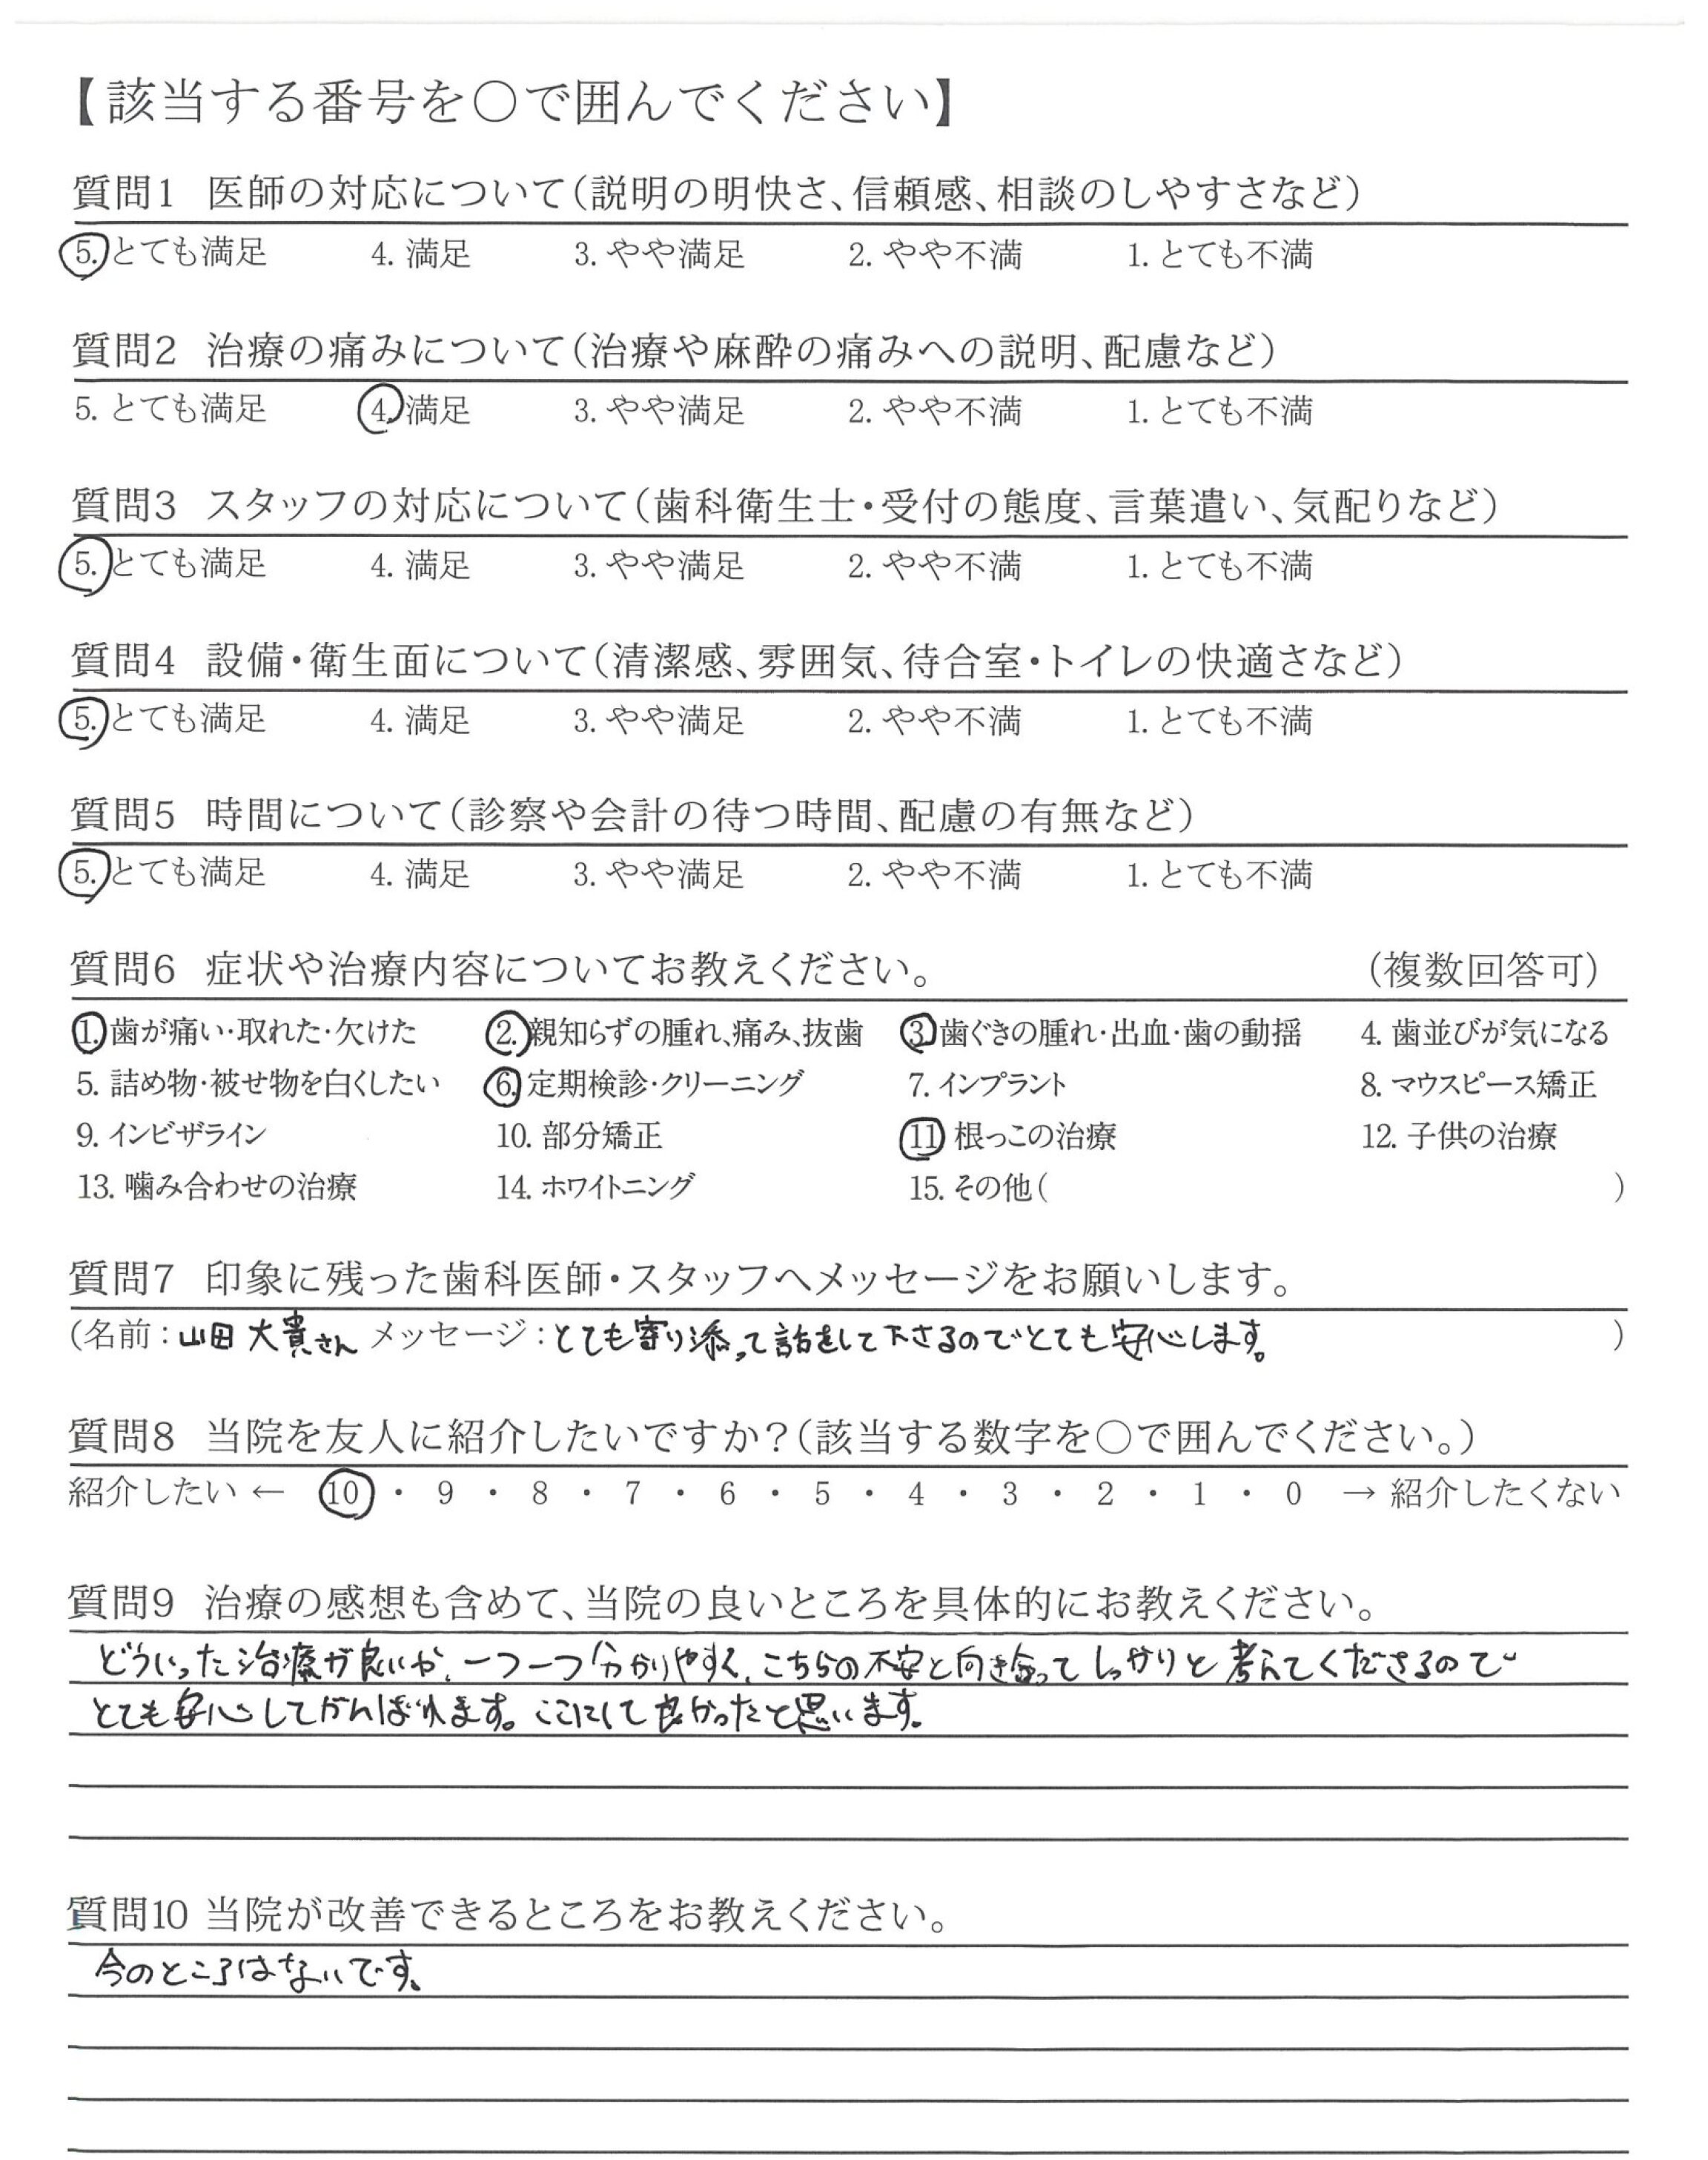 【該当する番号を○で囲んでください】
質問1 医師の対応について(説明の明快さ、信頼感、相談のしやすさなど)
5. とても満足 4. 満足 3. やや満足 2. やや不満 1. とても不満
質問2 治療の痛みについて(治療や麻酔の痛みへの説明、配慮など)
5. とても満足 4. 満足 3. やや満足 2. やや不満 1. とても不満
質問3 スタッフの対応について(歯科衛生士・受付の態度、言葉遣い、気配りなど)
5. とても満足 4. 満足 3. やや満足 2. やや不満 1. とても不満
質問4 設備・衛生面について(清潔感、雰囲気、待合室・トイレの快適さなど)
5. とても満足 4. 満足 3. やや満足 2. やや不満 1. とても不満
質問5 時間について(診察や会計の待つ時間、配慮の有無など)
5. とても満足 4. 満足 3. やや満足 2. やや不満 1. とても不満
質問6 症状や治療内容についてお教えください。 (複数回答可)
1. 歯が痛い・取れた・欠けた 2. 親知らずの腫れ、痛み、抜歯 3. 歯ぐきの腫れ・出血・歯の動揺 4. 歯並びが気になる
5. 詰め物・被せ物を白くしたい 6. 定期検診・クリーニング 7. インプラント 8. マウスピース矯正
9. インビザライン 10. 部分矯正 11. 根っこの治療 12. 子供の治療
13. 噛み合わせの治療 14. ホワイトニング 15. その他( )
質問7 印象に残った歯科医師・スタッフへメッセージをお願いします。
(名前:山田 大貴さん メッセージ:とても寄り添って話をして下さるのでとても安心します。 )
質問8 当院を友人に紹介したいですか?(該当する数字を○で囲んでください。)
紹介したい ← 10 ・ 9 ・ 8 ・ 7 ・ 6 ・ 5 ・ 4 ・ 3 ・ 2 ・ 1 ・ 0 → 紹介したくない
質問9 治療の感想も含めて、当院の良いところを具体的にお教えください。
どういった治療が良いか、一つ一つ分かりやすく、こちらの不安と向き合ってしっかりと考えてくださるので
とても安心してがんばれます。ここにして良かったと思います。
質問10 当院が改善できるところをお教えください。
今のところはないです。